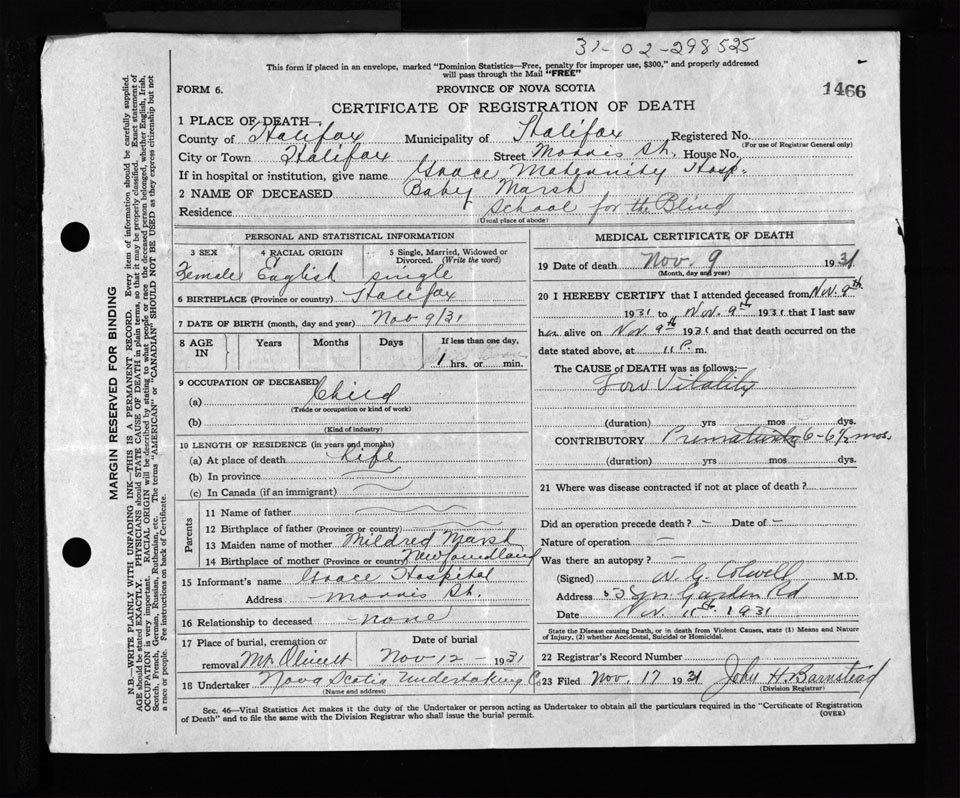 31-02-298525
This form if placed in an envelope, marked "Dominion Statistics—Free, penalty for improper use, $300," and properly addressed
will pass through the Mail "FREE"
FORM 6.
PROVINCE OF NOVA SCOTIA
1466
CERTIFICATE OF REGISTRATION OF DEATH
1 PLACE OF DEATH—
County of Halifax Municipality of Halifax Registered No.
(For use of Registrar General only)
City or Town Halifax Street Morris St. House No.
If in hospital or institution, give name Grace Maternity Hosp.
2 NAME OF DECEASED Baby Marsh
Residence School for the Blind
(Usual place of abode)
PERSONAL AND STATISTICAL INFORMATION
3 SEX 4 RACIAL ORIGIN 5 Single, Married, Widowed or Divorced. (Write the word)
Female English single
6 BIRTHPLACE (Province or country) Halifax
7 DATE OF BIRTH (month, day and year) Nov 9/31
8 AGE IN Years Months Days If less than one day,
1 hrs. or min.
9 OCCUPATION OF DECEASED
(a) Child
(Trade or occupation or kind of work)
(b)
(Kind of industry)
10 LENGTH OF RESIDENCE (in years and months)
(a) At place of death Life
(b) In province
(c) In Canada (if an immigrant)
Parents
11 Name of father
12 Birthplace of father (Province or country)
13 Maiden name of mother Mildred Marsh
14 Birthplace of mother (Province or country) Newfoundland
15 Informant's name Grace Hospital
Address Morris St.
16 Relationship to deceased none
17 Place of burial, cremation or Date of burial
removal Mt. Olivet Nov 12 1931
18 Undertaker Nova Scotia Undertaking Co
(Name and address)
MEDICAL CERTIFICATE OF DEATH
19 Date of death Nov. 9 1931
(Month, day and year)
20 I HEREBY CERTIFY that I attended deceased from Nov. 9th
1931 to Nov. 9th 1931 that I last saw
her alive on Nov. 9th 1931 and that death occurred on the
date stated above, at 11 P. m.
The CAUSE of DEATH was as follows:—
Low Vitality
(duration) yrs mos dys.
CONTRIBUTORY Prematurity 6-6½ mos.
(duration) yrs mos dys.
21 Where was disease contracted if not at place of death?
Did an operation precede death? – Date of –
Nature of operation —
Was there an autopsy? –
(Signed) W. G. Colwell M.D.
Address Garden Rd
Date Nov. 11th 1931
State the Disease causing Death, or in death from Violent Causes, state (1) Means and Nature
of Injury, (2) whether Accidental, Suicidal or Homicidal.
22 Registrar's Record Number
23 Filed Nov. 17 1931 John H. Barnstead
(Division Registrar)
Sec. 46—Vital Statistics Act makes it the duty of the Undertaker or person acting as Undertaker to obtain all the particulars required in the "Certificate of Registration
of Death" and to file the same with the Division Registrar who shall issue the burial permit.
(OVER)
MARGIN RESERVED FOR BINDING
N.B.—WRITE PLAINLY WITH UNFADING INK—THIS IS A PERMANENT RECORD. Every item of information should be carefully supplied.
AGE should be stated EXACTLY. PHYSICIANS should STATE CAUSE OF DEATH in plain terms, so that it may be properly classified. Exact statement of
OCCUPATION is very important. RACIAL ORIGIN will be described by stating to what people or race the deceased person belonged, whether English, Irish,
Scotch, French, German, Russian, Ruthenian, etc. The terms "AMERICAN" or "CANADIAN" SHOULD NOT BE USED as they express citizenship but not
a race or people. See instructions on back of Certificate.